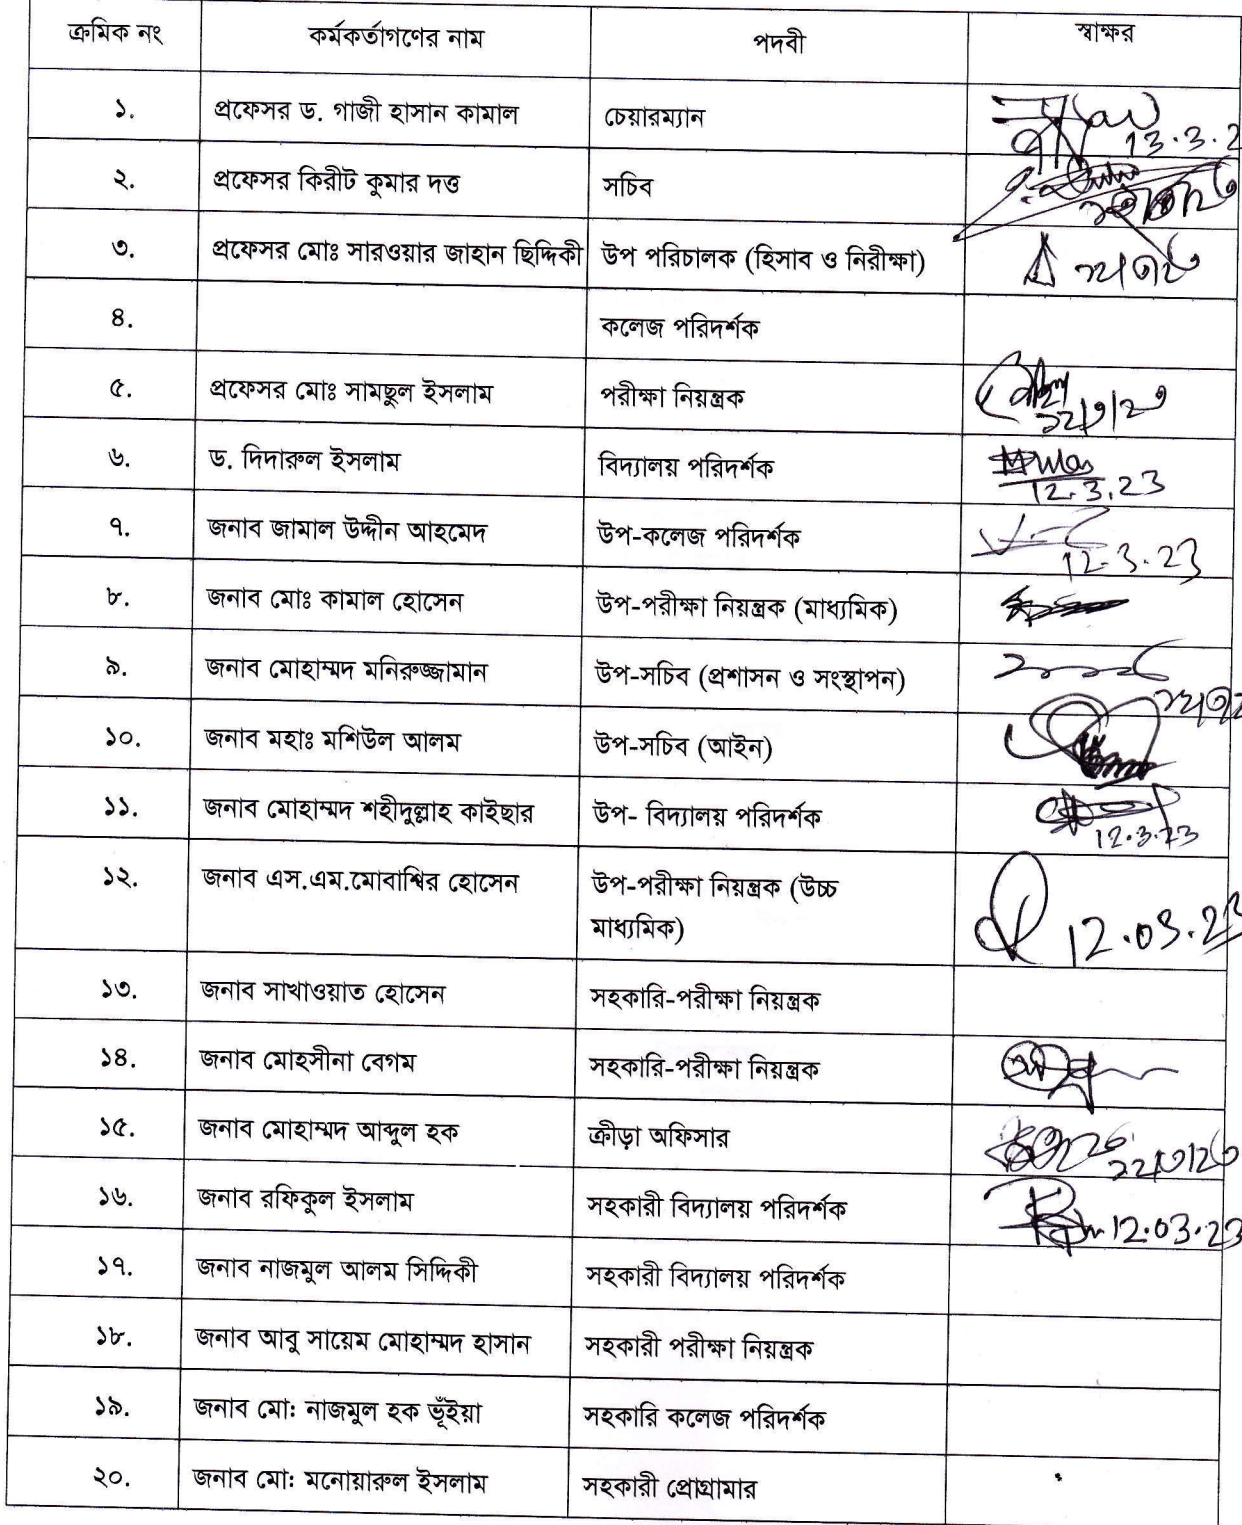 ক্রমিক নং কর্মকর্তাগণের নাম পদবী স্বাক্ষর
১. প্রফেসর ড. গাজী হাসান কামাল চেয়ারম্যান
13.3.2
২. প্রফেসর কিরীট কুমার দত্ত সচিব
৩. প্রফেসর মোঃ সারওয়ার জাহান ছিদ্দিকী উপ পরিচালক (হিসাব ও নিরীক্ষা)
৪. কলেজ পরিদর্শক
৫. প্রফেসর মোঃ সামছুল ইসলাম পরীক্ষা নিয়ন্ত্রক
৬. ড. দিদারুল ইসলাম বিদ্যালয় পরিদর্শক
12.3.23
৭. জনাব জামাল উদ্দীন আহমেদ উপ-কলেজ পরিদর্শক
12.3.23
৮. জনাব মোঃ কামাল হোসেন উপ-পরীক্ষা নিয়ন্ত্রক (মাধ্যমিক)
৯. জনাব মোহাম্মদ মনিরুজ্জামান উপ-সচিব (প্রশাসন ও সংস্থাপন)
১০. জনাব মহাঃ মশিউল আলম উপ-সচিব (আইন)
১১. জনাব মোহাম্মদ শহীদুল্লাহ কাইছার উপ- বিদ্যালয় পরিদর্শক
12.3.23
১২. জনাব এস.এম.মোবাশ্বির হোসেন উপ-পরীক্ষা নিয়ন্ত্রক (উচ্চ
মাধ্যমিক) 12.03.23
১৩. জনাব সাখাওয়াত হোসেন সহকারি-পরীক্ষা নিয়ন্ত্রক
১৪. জনাব মোহসীনা বেগম সহকারি-পরীক্ষা নিয়ন্ত্রক
১৫. জনাব মোহাম্মদ আব্দুল হক ক্রীড়া অফিসার
১৬. জনাব রফিকুল ইসলাম সহকারী বিদ্যালয় পরিদর্শক
12.03.23
১৭. জনাব নাজমুল আলম সিদ্দিকী সহকারী বিদ্যালয় পরিদর্শক
১৮. জনাব আবু সায়েম মোহাম্মদ হাসান সহকারী পরীক্ষা নিয়ন্ত্রক
১৯. জনাব মো: নাজমুল হক ভূঁইয়া সহকারি কলেজ পরিদর্শক
২০. জনাব মো: মনোয়ারুল ইসলাম সহকারী প্রোগ্রামার